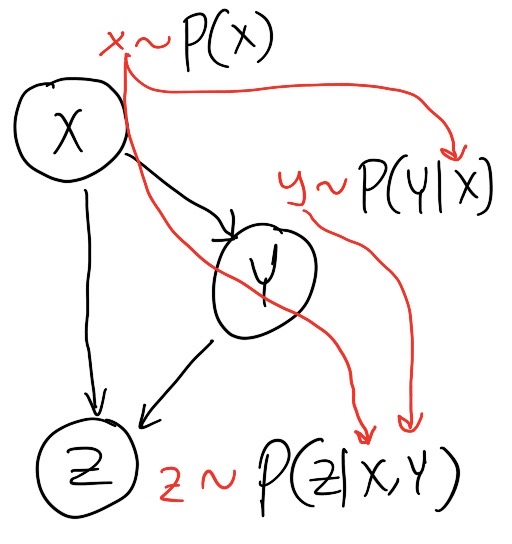 x ~ P(X)
X
y ~ P(Y|X)
Y
Z
z ~ P(Z|X,Y)